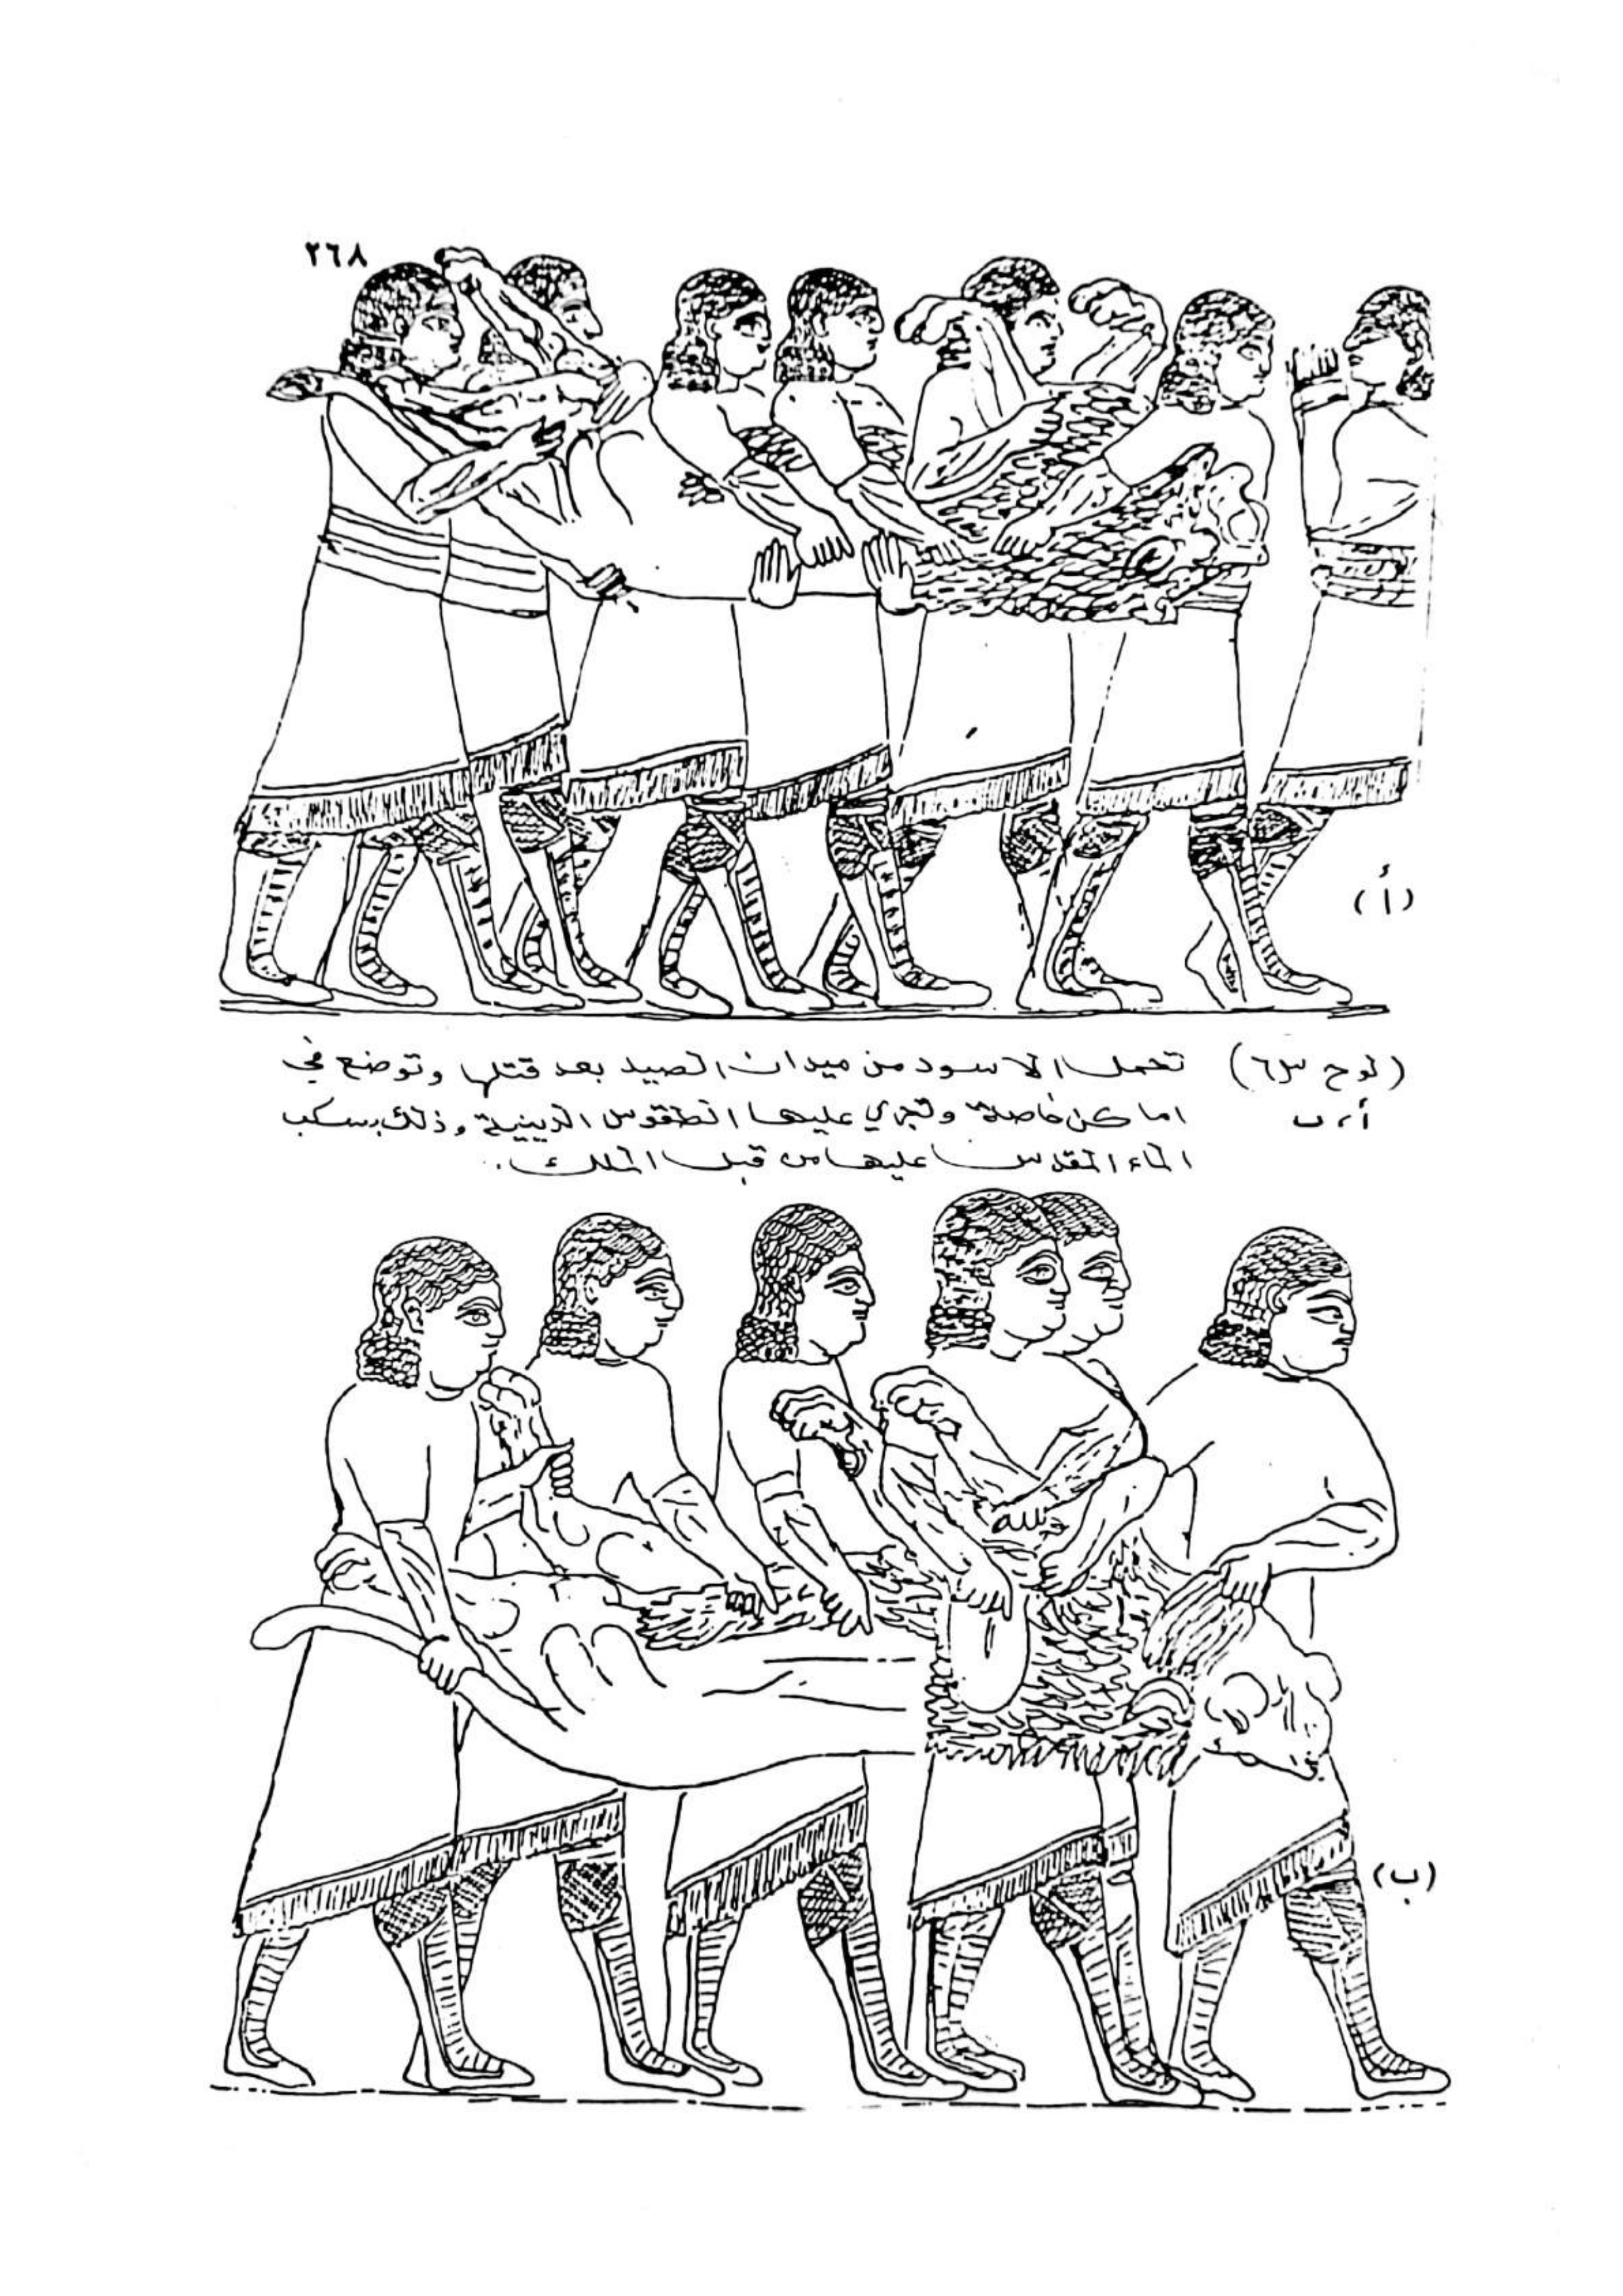 ٢٦٨
(أ)
(لوح ٦٣) تحمل الاسود من ميدان الصيد بعد قتلها وتوضع في
أ، ب اماكن خاصة وتجري عليها الطقوس الدينية وذلك بسكب
الماء المقدس عليها من قبل الملك.
(ب)